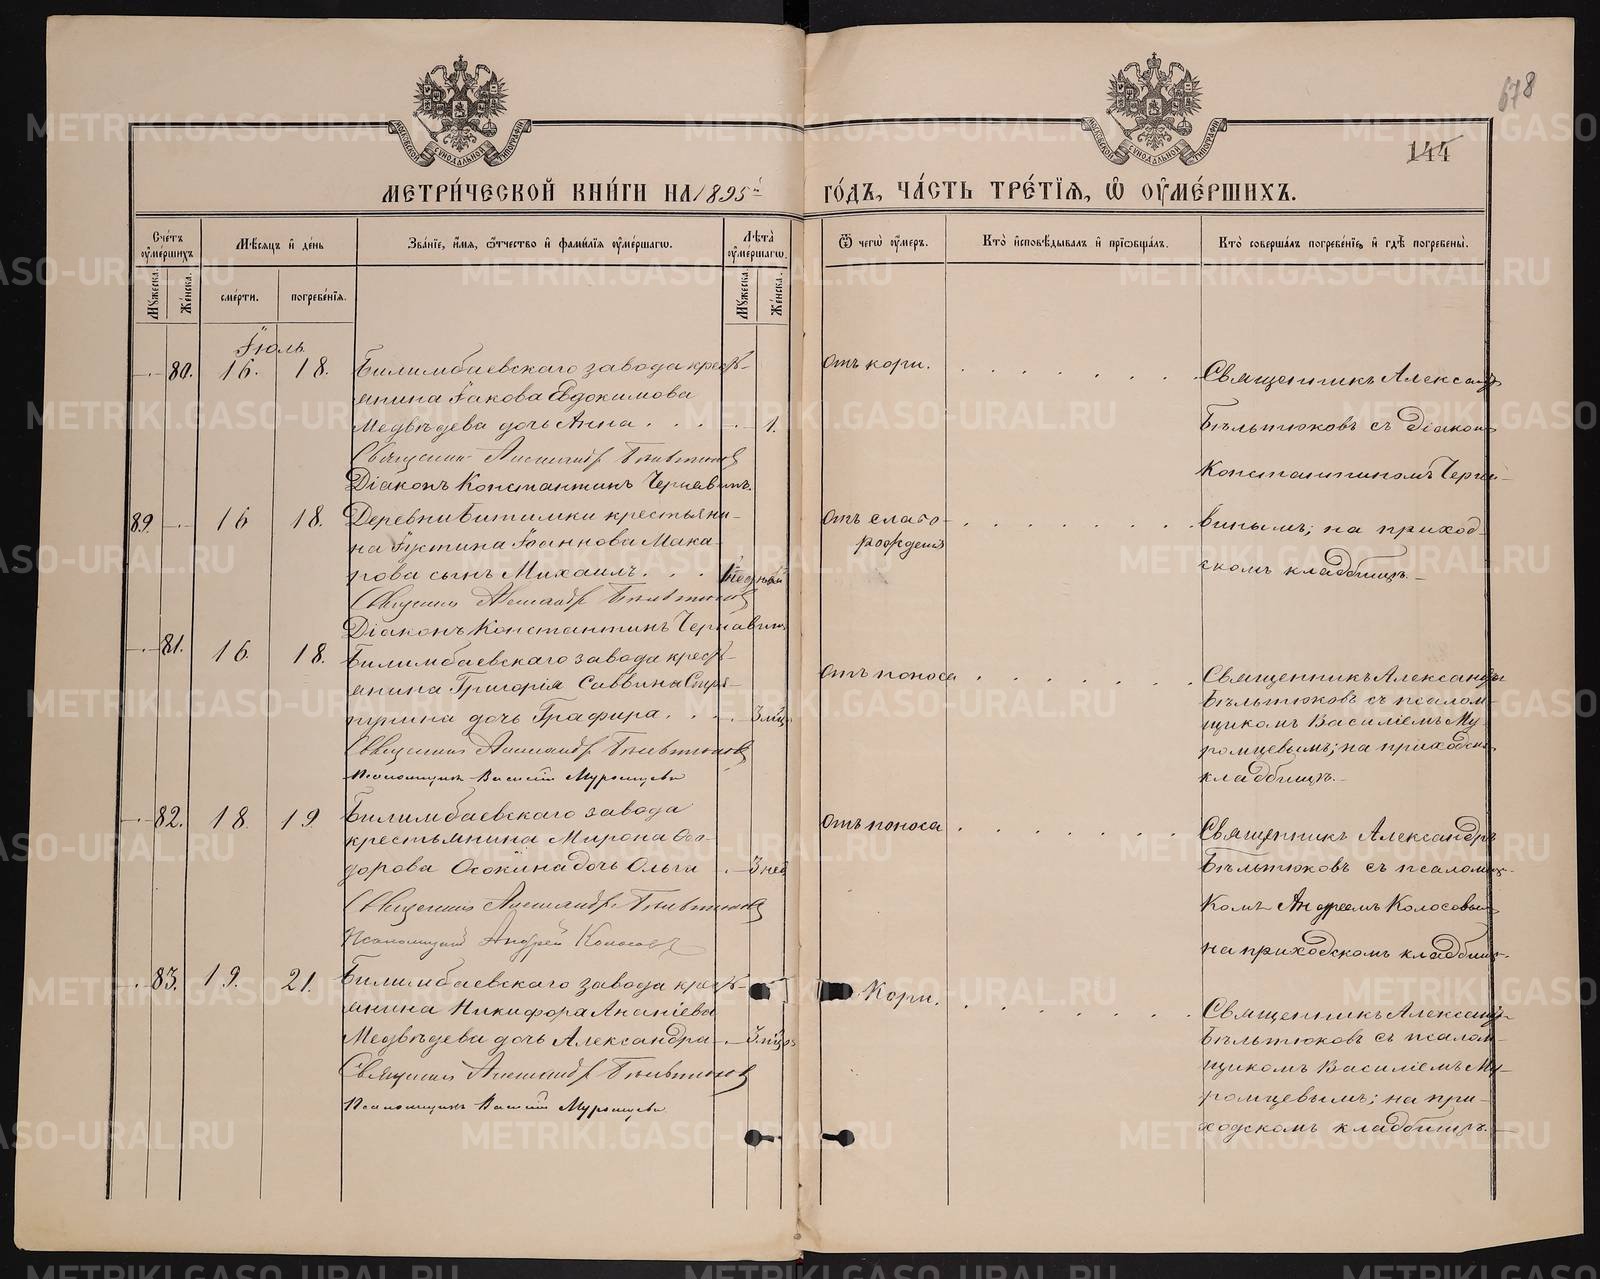 678
144
МЕТРИ́ЧЕСКОЙ КНИ́ГИ НА 1895й ГО́ДЪ, ЧА́СТЬ ТРЕ́ТІѦ, Ѡ ОУ҆МЕ́РШИХЪ.
Сче́тъ оу҆ме́ршихъ
Мꙋ́жеска.
Же́нска.
Мѣ́сѧцъ и҆ де́нь
сме́рти.
погребе́нїѧ.
Зва́нїе, и҆́мѧ, ѻ҆́тчество и҆ фами́лїѧ оу҆ме́ршагѡ.
Лѣ́та оу҆ме́ршагѡ.
Мꙋ́жеска.
Же́нска.
Ѿ чегѡ̀ оу҆́меръ.
Кто̀ и҆сповѣ́дывалъ и҆ прїѡбща́лъ.
Кто̀ соверша́лъ погребе́нїе, и҆ гдѣ̀ погребены̀.
Іюль
80. 16. 18. Билимбаевскаго завода кресть-
янина Іакова Евдокимова
Медвѣдева дочь Анна . . . 1.
Священник Александр Бѣльтюков
Діаконъ Константинъ Чернавинъ.
Отъ кори.
Священникъ Александръ
Бѣльтюковъ съ діакон
Константиномъ Черна-
89. 16 18. Деревни Битимки крестьяни-
на Іустина Іоаннова Мака-
рова сынъ Михаилъ . . .
Священник Александр Бѣльтюков
Діаконъ Константинъ Чернавинъ
Отъ слабо-
рожденія
винымъ; на приход-
скомъ кладбищѣ.
81. 16. 18. Билимбаевскаго завода кресть-
янина Григорія Саввина
дочь Графира . . . 3 мѣц.
Священник Александр Бѣльтюков
Псаломщикъ Василій Муромцевъ
Отъ поноса
Священникъ Александръ
Бѣльтюковъ съ псалом-
щикомъ Василіемъ Му-
ромцевымъ; на приходском
кладбищѣ.
82. 18. 19. Билимбаевскаго завода
крестьянина Мирона Ѳео-
дорова Осокина дочь Ольга 3 нед
Священник Александр Бѣльтюков
Псаломщик Андрей Колосовъ
Отъ поноса
Священникъ Александръ
Бѣльтюковъ съ псаломщи-
комъ Андреемъ Колосовым
на приходскомъ кладбищѣ.
83. 19. 21. Билимбаевскаго завода кресть-
янина Никифора Ананіева
Медвѣдева дочь Александра 3 мѣц.
Священник Александр Бѣльтюков
Псаломщикъ Василій Муромцевъ
Кори.
Священникъ Александръ
Бѣльтюковъ съ псалом-
щикомъ Василіемъ Му-
ромцевымъ; на при-
ходскомъ кладбищѣ.
METRIKI.GASO-URAL.RU